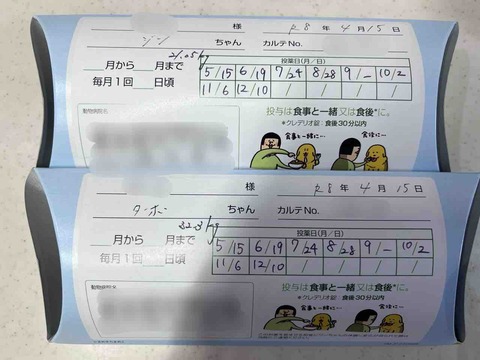 様　R8年4月15日
シン ちゃん　カルテNo.
21.05kg
月から　月まで
毎月1回　日頃
投薬日(月／日)
5/15 6/19 7/24 8/28 9/- 10/2
11/6 12/10 / / / /
動物病院名
投与は食事と一緒又は食後*に。
*クレデリオ錠：食後30分以内
食事と一緒に… 食後に…
様　R8年4月15日
ターボー ちゃん　カルテNo.
32.3kg
月から　月まで
毎月1回　日頃
投薬日(月／日)
5/15 6/19 7/24 8/28 9/- 10/2
11/6 12/10 / / / /
動物病院名
投与は食事と一緒又は食後*に。
*クレデリオ錠：食後30分以内
食事と一緒に… 食後に…